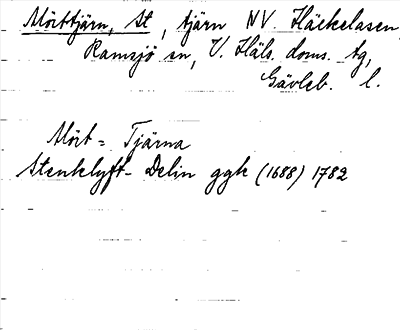 Mörttjärn, St, tjärn NV. Häckelåsen
Ramsjö sn, V. Häls. doms. tg,
Gävleb. l.
Mört= Tjärna
Stenklyft- Delin ggk (1688) 1782